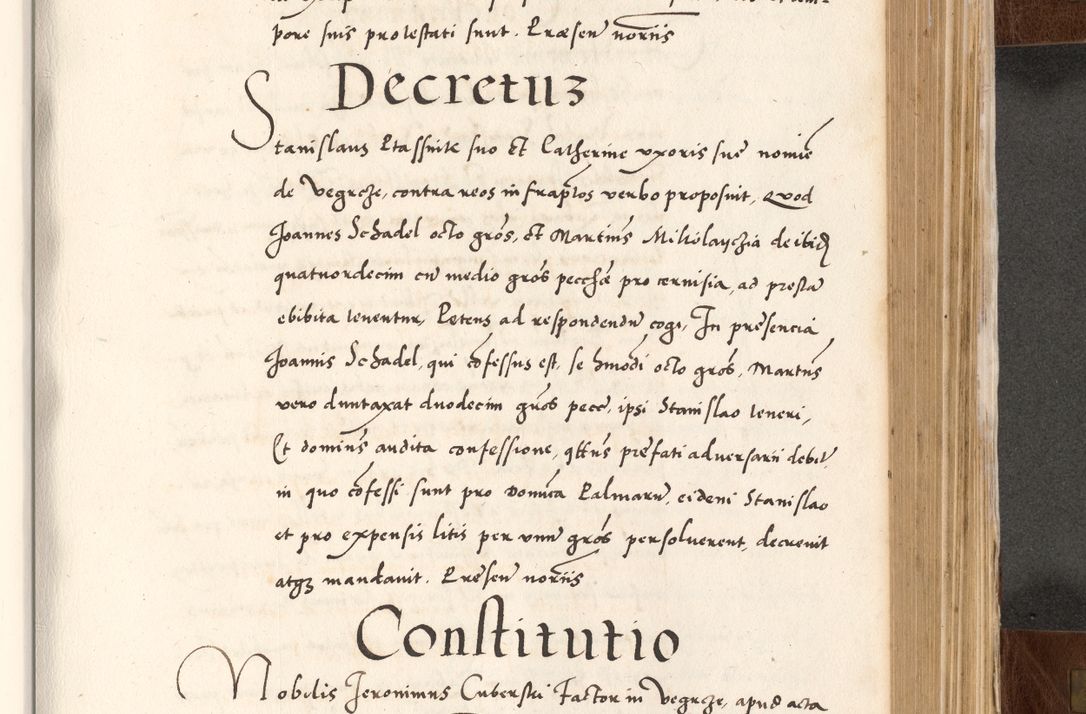 pore suis protestati sunt. Præsen̄ nor̄iis
Decretuʒ
Stanislaus Ptassnik suo et Catherine uxoris sue nomīe
de Vegrcze, contra reos infrap̄tos verbo proposuit, Quod
Joannes Schadel octo gros̄, et Martin̄s Mikolayczia de ibid
quatuordecim cū medio gros̄ pecc̄hæ pro cervisia, ad presta
ebibita tenentur, Petens ad respondendū cogi, In pre̅sencia
Joannis Schadel, qui cōfessus est, se hm̄odi octo gros̄, Martin̄s
vero duntaxat duodecim gros̄ pecc̄, ipsi Stanislao teneri,
Et domin̄s audita confessione, q̄ten̄s pre̅fati adversarii debit̄,
in quo cōfessi sunt pro Domīca Palmarū, eidem Stanislao
et pro expensis litis per unū gros̄ persolverent, decrevit
atqʒ mandavit. Presen̄ nor̄iis
Constitutio
Nobilis Jeronimus Cuberski Factor in Vegrcze, apud acta